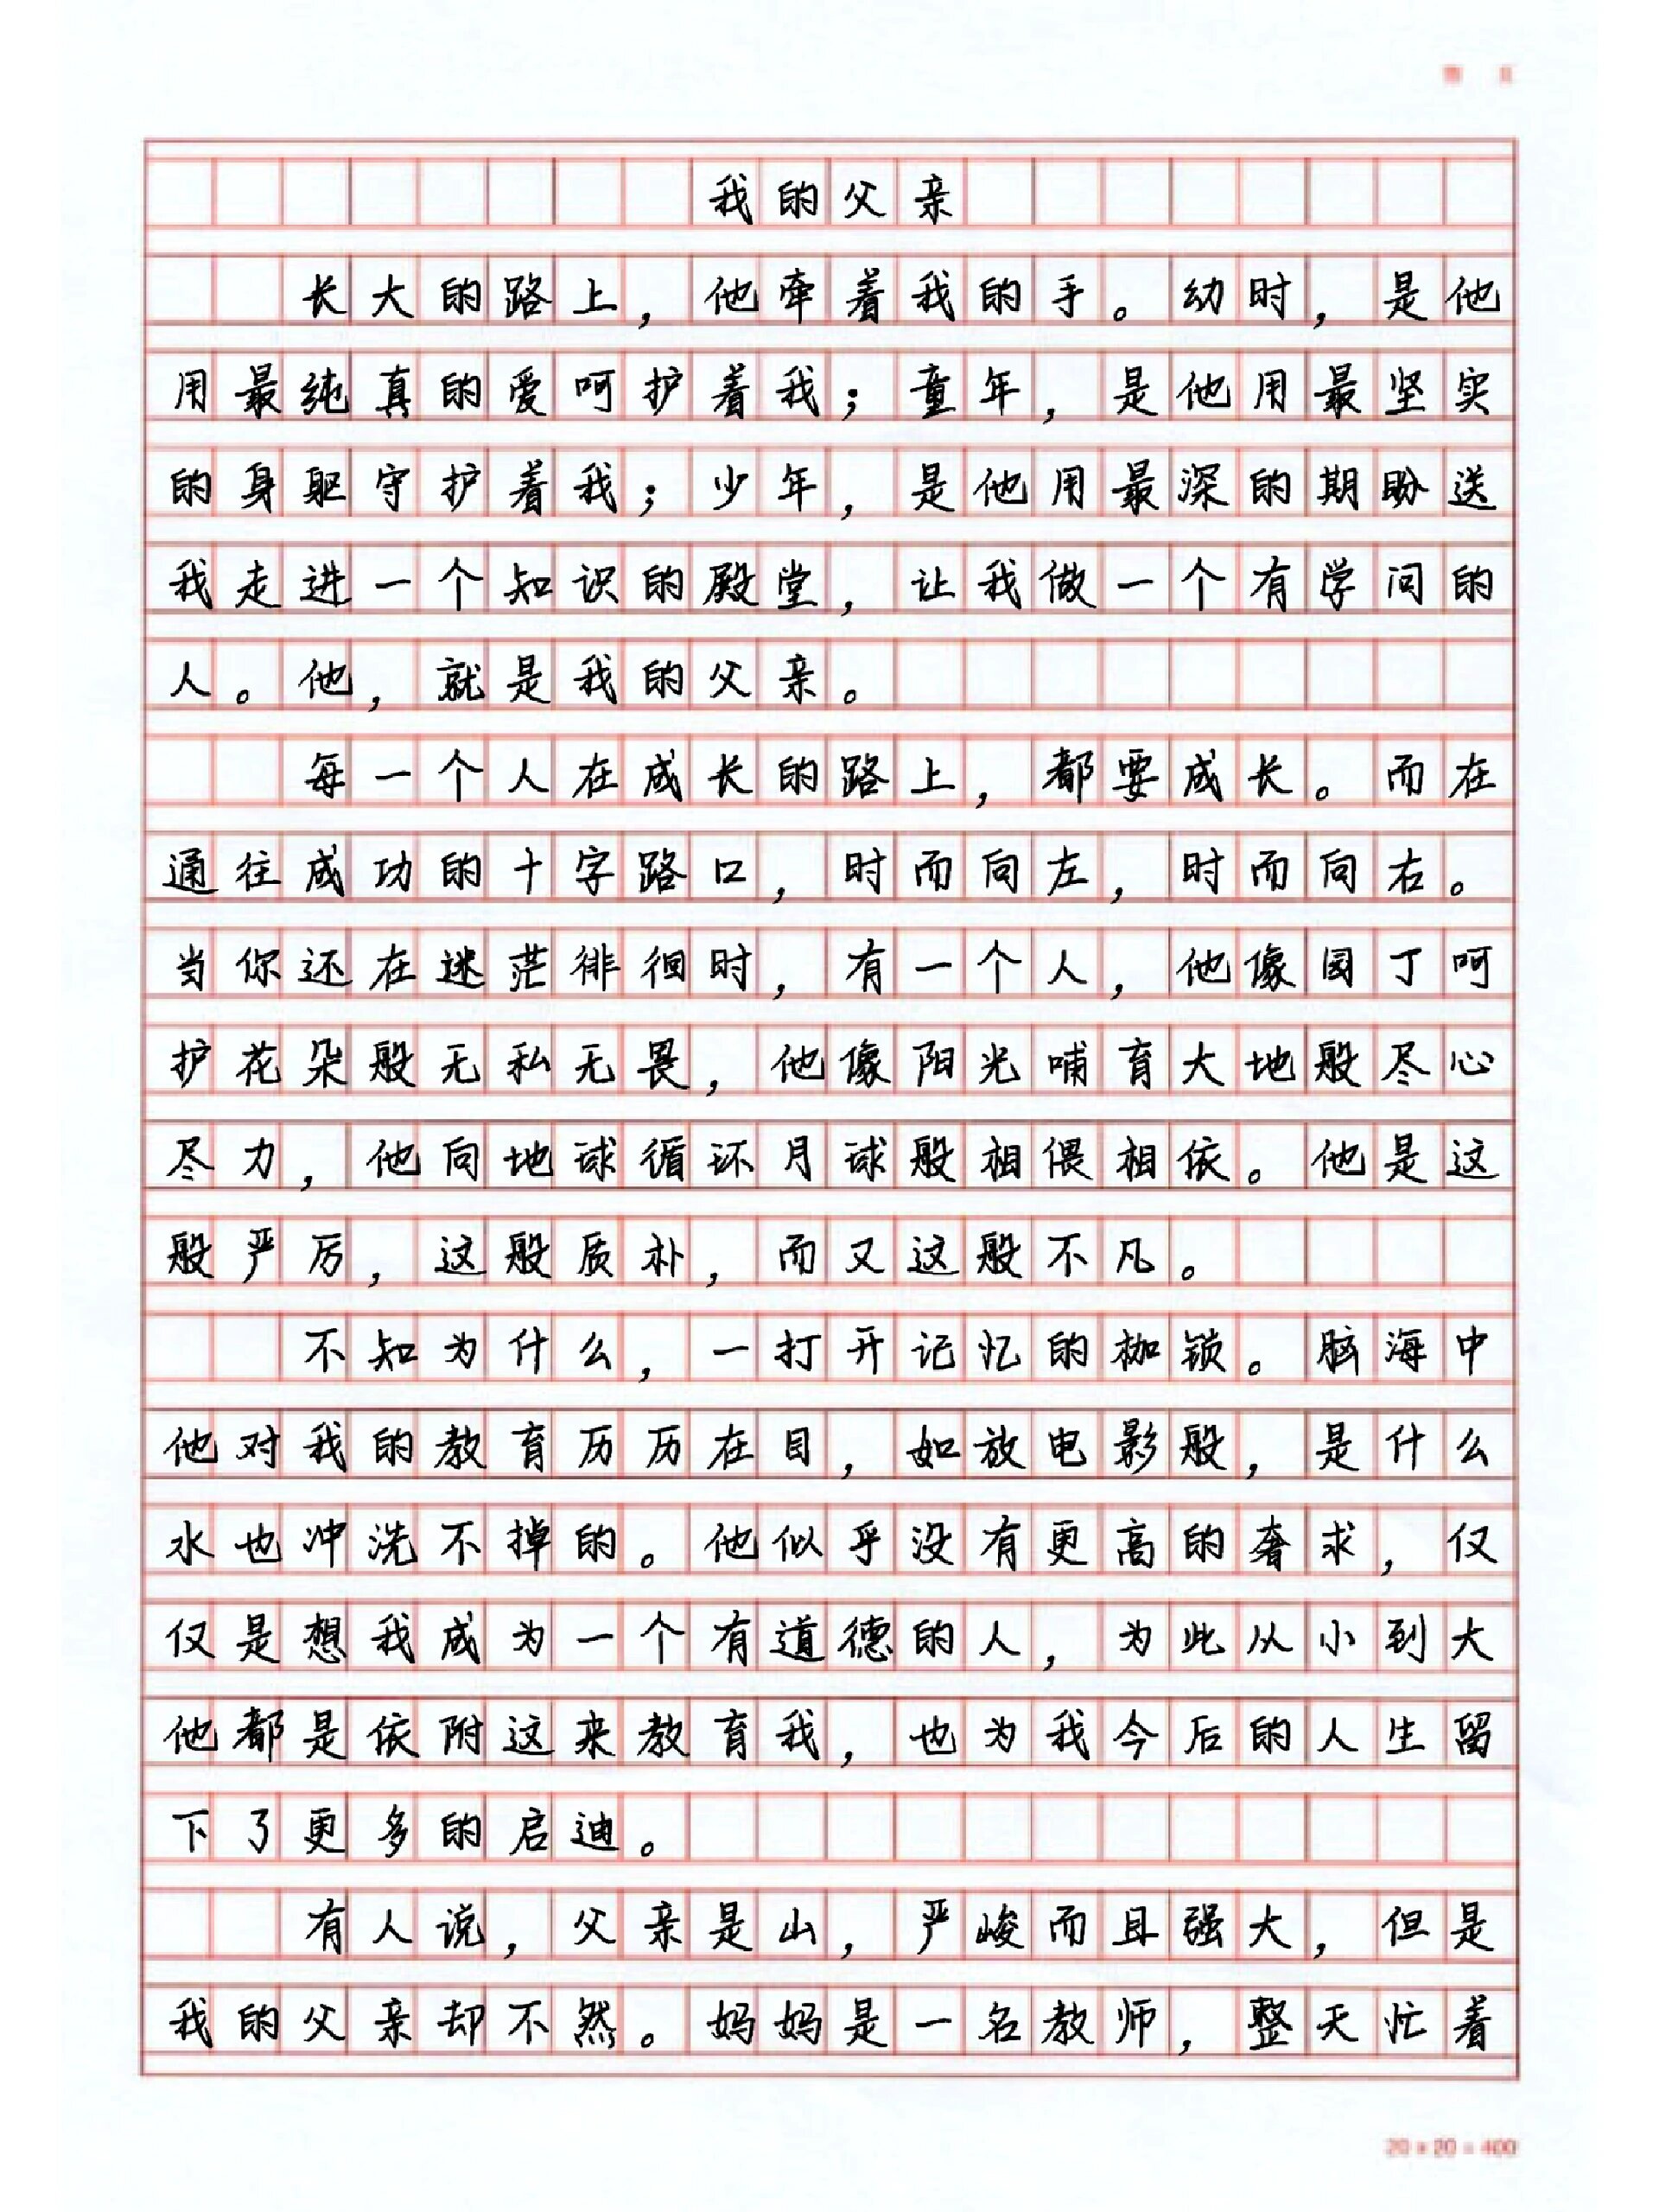 我的父亲
长大的路上，他牵着我的手。幼时，是他
用最纯真的爱呵护着我；童年，是他用最坚实
的身躯守护着我；少年，是他用最深的期盼送
我走进一个知识的殿堂，让我做一个有学问的
人。他，就是我的父亲。
每一个人在成长的路上，都要成长。而在
通往成功的十字路口，时而向左，时而向右。
当你还在迷茫徘徊时，有一个人，他像园丁呵
护花朵般无私无畏，他像阳光哺育大地般尽心
尽力，他向地球循环月球般相偎相依。他是这
般严厉，这般质朴，而又这般不凡。
不知为什么，一打开记忆的枷锁。脑海中
他对我的教育历历在目，如放电影般，是什么
水也冲洗不掉的。他似乎没有更高的奢求，仅
仅是想我成为一个有道德的人，为此从小到大
他都是依附这来教育我，也为我今后的人生留
下了更多的启迪。
有人说，父亲是山，严峻而且强大，但是
我的父亲却不然。妈妈是一名教师，整天忙着
20×20=400